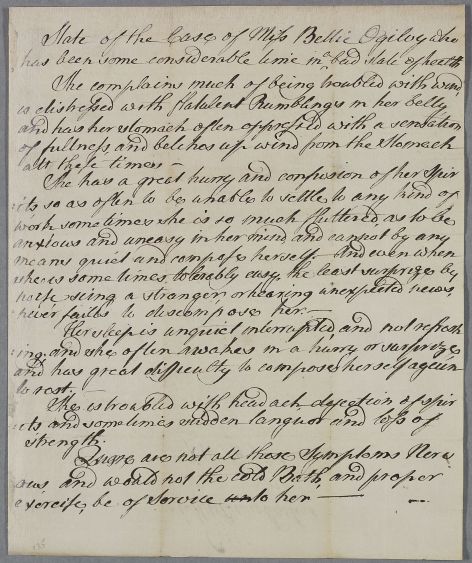 State of the Case of Miss Bellie Ogilvy who
has been some considerable time in a bad state of health
She complains much of being troubled with wind,
is distressed with flatulent Rumblings in her belly
and has her stomach often oppressed with a sensation
of fullness, and belches up wind from the stomach
att these times —
She has a great hurry and confusion of her Spir
its so as often to be unable to settle to any kind of
work sometimes she is so much fluttered as to be
anxious and uneasy in her mind and cannot by any
means quiet and compose herself. And even when
she is some times tolerably easy, the least surprize by
noise seeing a stranger, or hearing unexpected news,
never fails to discompose her. —
Her sleep is unquiet interrupted, and not refresh
ing, and she often awakes in a hurry or surprize
and has great difficulty to compose herself again
to rest. —
She is troubled with headach, dejection of spir
its and sometimes sudden languor and loss of
strength.
Quære are not all these Symptoms Nerv
ous and would not the cold Bath, and proper
exercise, be of service to her —